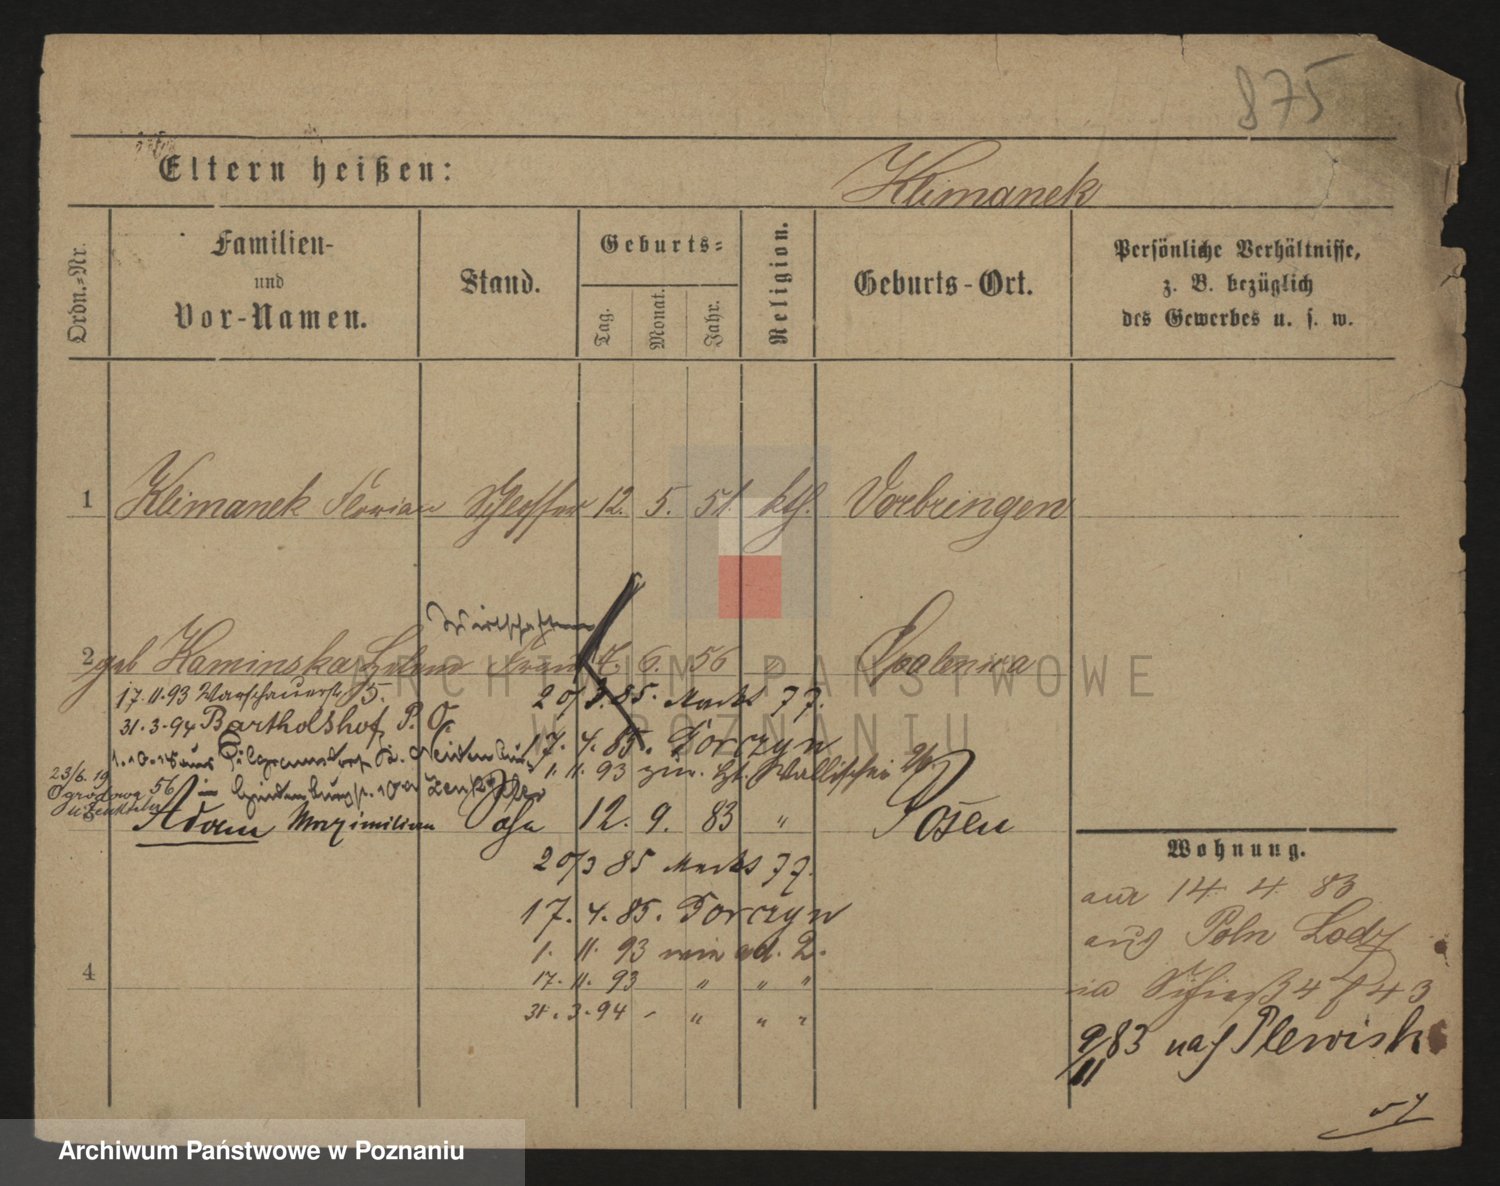 875
Eltern heißen:
Klimanek
Ordn.-Nr.
Familien-
und
Vor-Namen.
Stand.
Geburts-
Tag.
Monat.
Jahr.
Religion.
Geburts-Ort.
Persönliche Verhältnisse,
z. B. bezüglich
des Gewerbes u. s. w.
1 Klimanek Florian Schlosser 12. 5. 51. kth. Vorbringen
Wirtschafterin
2 geb Kaminska Helene Frau 6. 56 " Opalenica
17.11.93 Warschauerstr 15.
20/3.85. Markt 77.
31.3.94 Bartholdshof, P. O.
17. 4. 85. Torczyn
1. 11. 93 Wallischei
23/6. 19
Ogrodowa 56
Adam Maximilian Sohn 12. 9. 83 " Posen
20/3 85 Markt 77.
17. 4. 85. Torczyn
1. 11. 93 wie ad. 2.
4
17. 11. 93 " " "
31. 3. 94 " " "
Wohnung.
aus 14. 4. 83
aus Poln Lodz
in Schießstr 43
9/11 83 nach Plewisk
ARCHIWUM PAŃSTWOWE
W POZNANIU
Archiwum Państwowe w Poznaniu